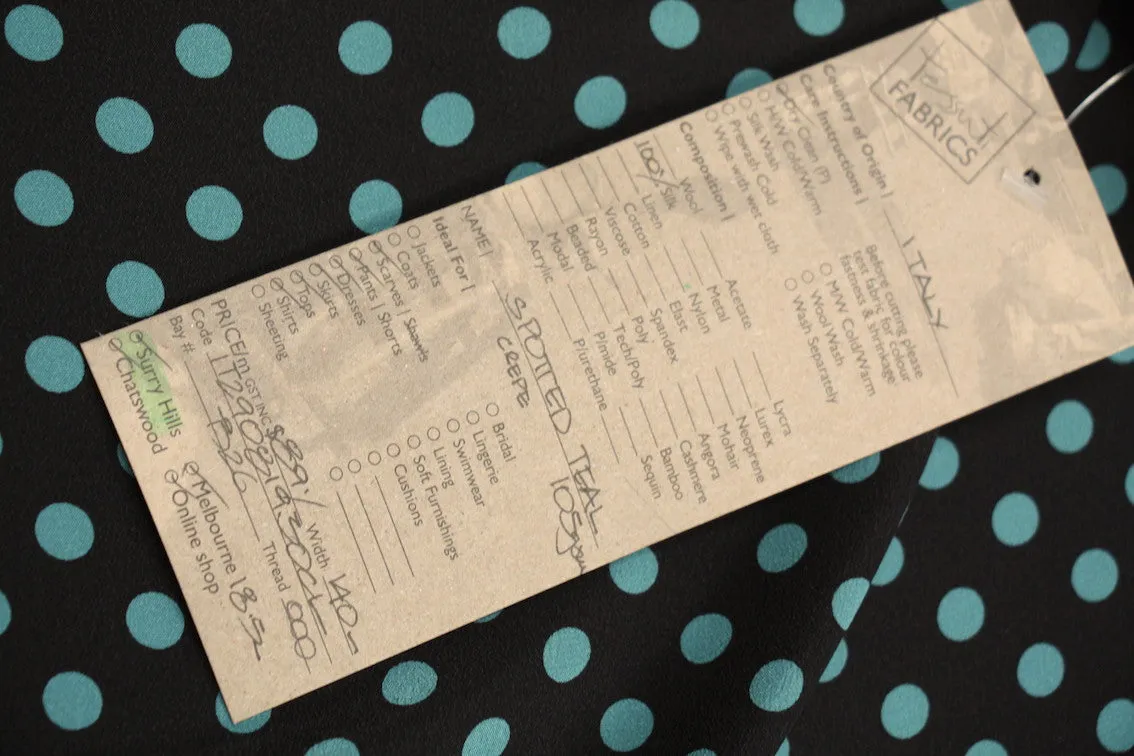 Tessuti
FABRICS
Country of Origin | ITALY
Care Instructions |
Before cutting please
test fabric for colour
fastness & shrinkage
Dry Clean (P)
H/W Cold/Warm
M/W Cold/Warm
Silk Wash
Wool Wash
Prewash Cold
Wash Separately
Wipe with wet cloth
Composition |
Wool Acetate Lycra
100% Silk Metal Lurex
Linen Nylon Neoprene
Cotton Elast Mohair
Viscose Spandex Angora
Rayon Poly Cashmere
Beaded Tech/Poly Bamboo
Modal P/imide Sequin
Acrylic P/urethane
NAME | SPOTTED TEAL
CREPE 105gsm
Ideal For |
Jackets Bridal
Coats Lingerie
Scarves | Shawls Swimwear
Pants | Shorts Lining
Dresses Soft Furnishings
Skirts Cushions
Tops
Shirts
Sheeting
PRICE/m GST INC $89/ Width 140-
Code Thread 000
Bay # B26
Surry Hills Melbourne 18.5
Chatswood Online shop